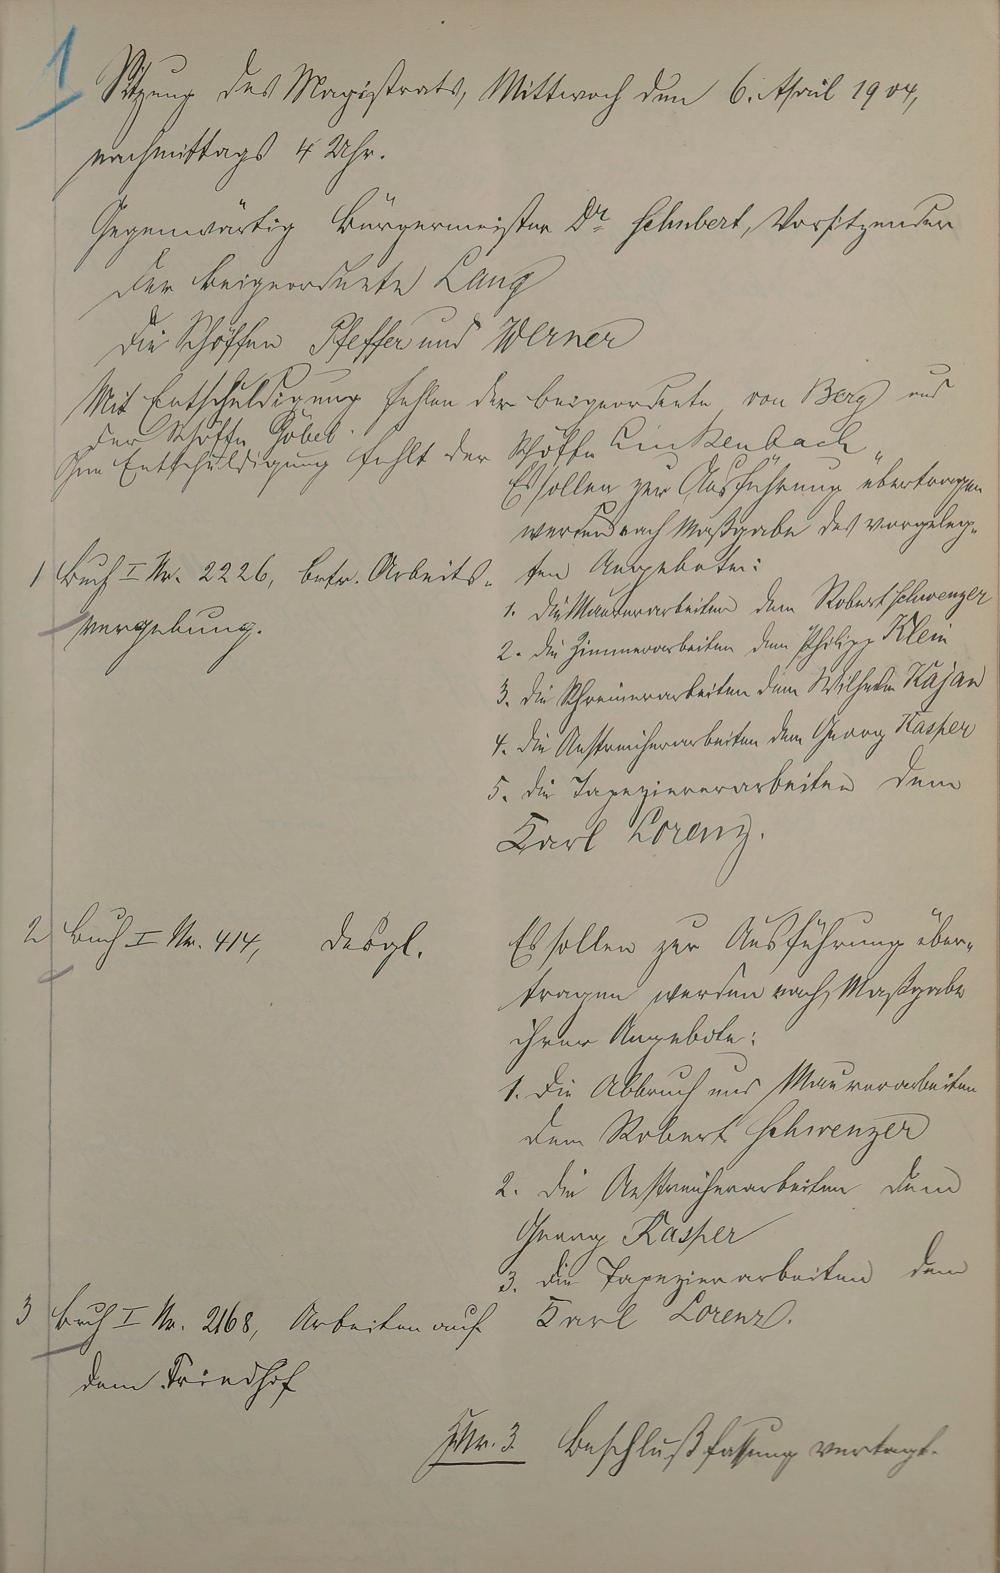 1
Sitzung des Magistrats, Mittwoch den 6. April 1904,
nachmittags 4 Uhr.
Gegenwärtig Bürgermeister Dr Schubert, Vorsitzender
der Beigeordnete Lang
die Schöffen Pfeffer und Werner
Mit Entschuldigung fehlen der Beigeordnete von Berg und
der Schöffe Göbel.
Ohne Entschuldigung fehlt der Schöffe Linkenbach
1 Buch I Nr. 2226, betr. Arbeits-
vergebung.
Es sollen zur Ausführung übertragen
werden nach Maßgabe des vorgeleg-
ten Angebotes:
1. die Maurerarbeiten dem Robert Schwenzer
2. die Zimmerarbeiten dem Philipp Klein
3. die Schreinerarbeiten dem Wilhelm Kajan
4. die Anstreicherarbeiten dem Georg Kasper
5. die Tapeziererarbeiten dem
Karl Lorenz.
2 Buch I Nr. 414, desgl.
Es sollen zur Ausführung über-
tragen werden nach Maßgabe
ihrer Angebote:
1. die Abbruch und Maurerarbeiten
dem Robert Schwenzer
2. die Anstreicherarbeiten dem
Georg Kasper
3. die Tapezierarbeiten dem
Karl Lorenz.
3 Buch I Nr. 2168, Arbeiten auf
dem Friedhof
Zu Nr. 3. Beschlußfassung vertagt.